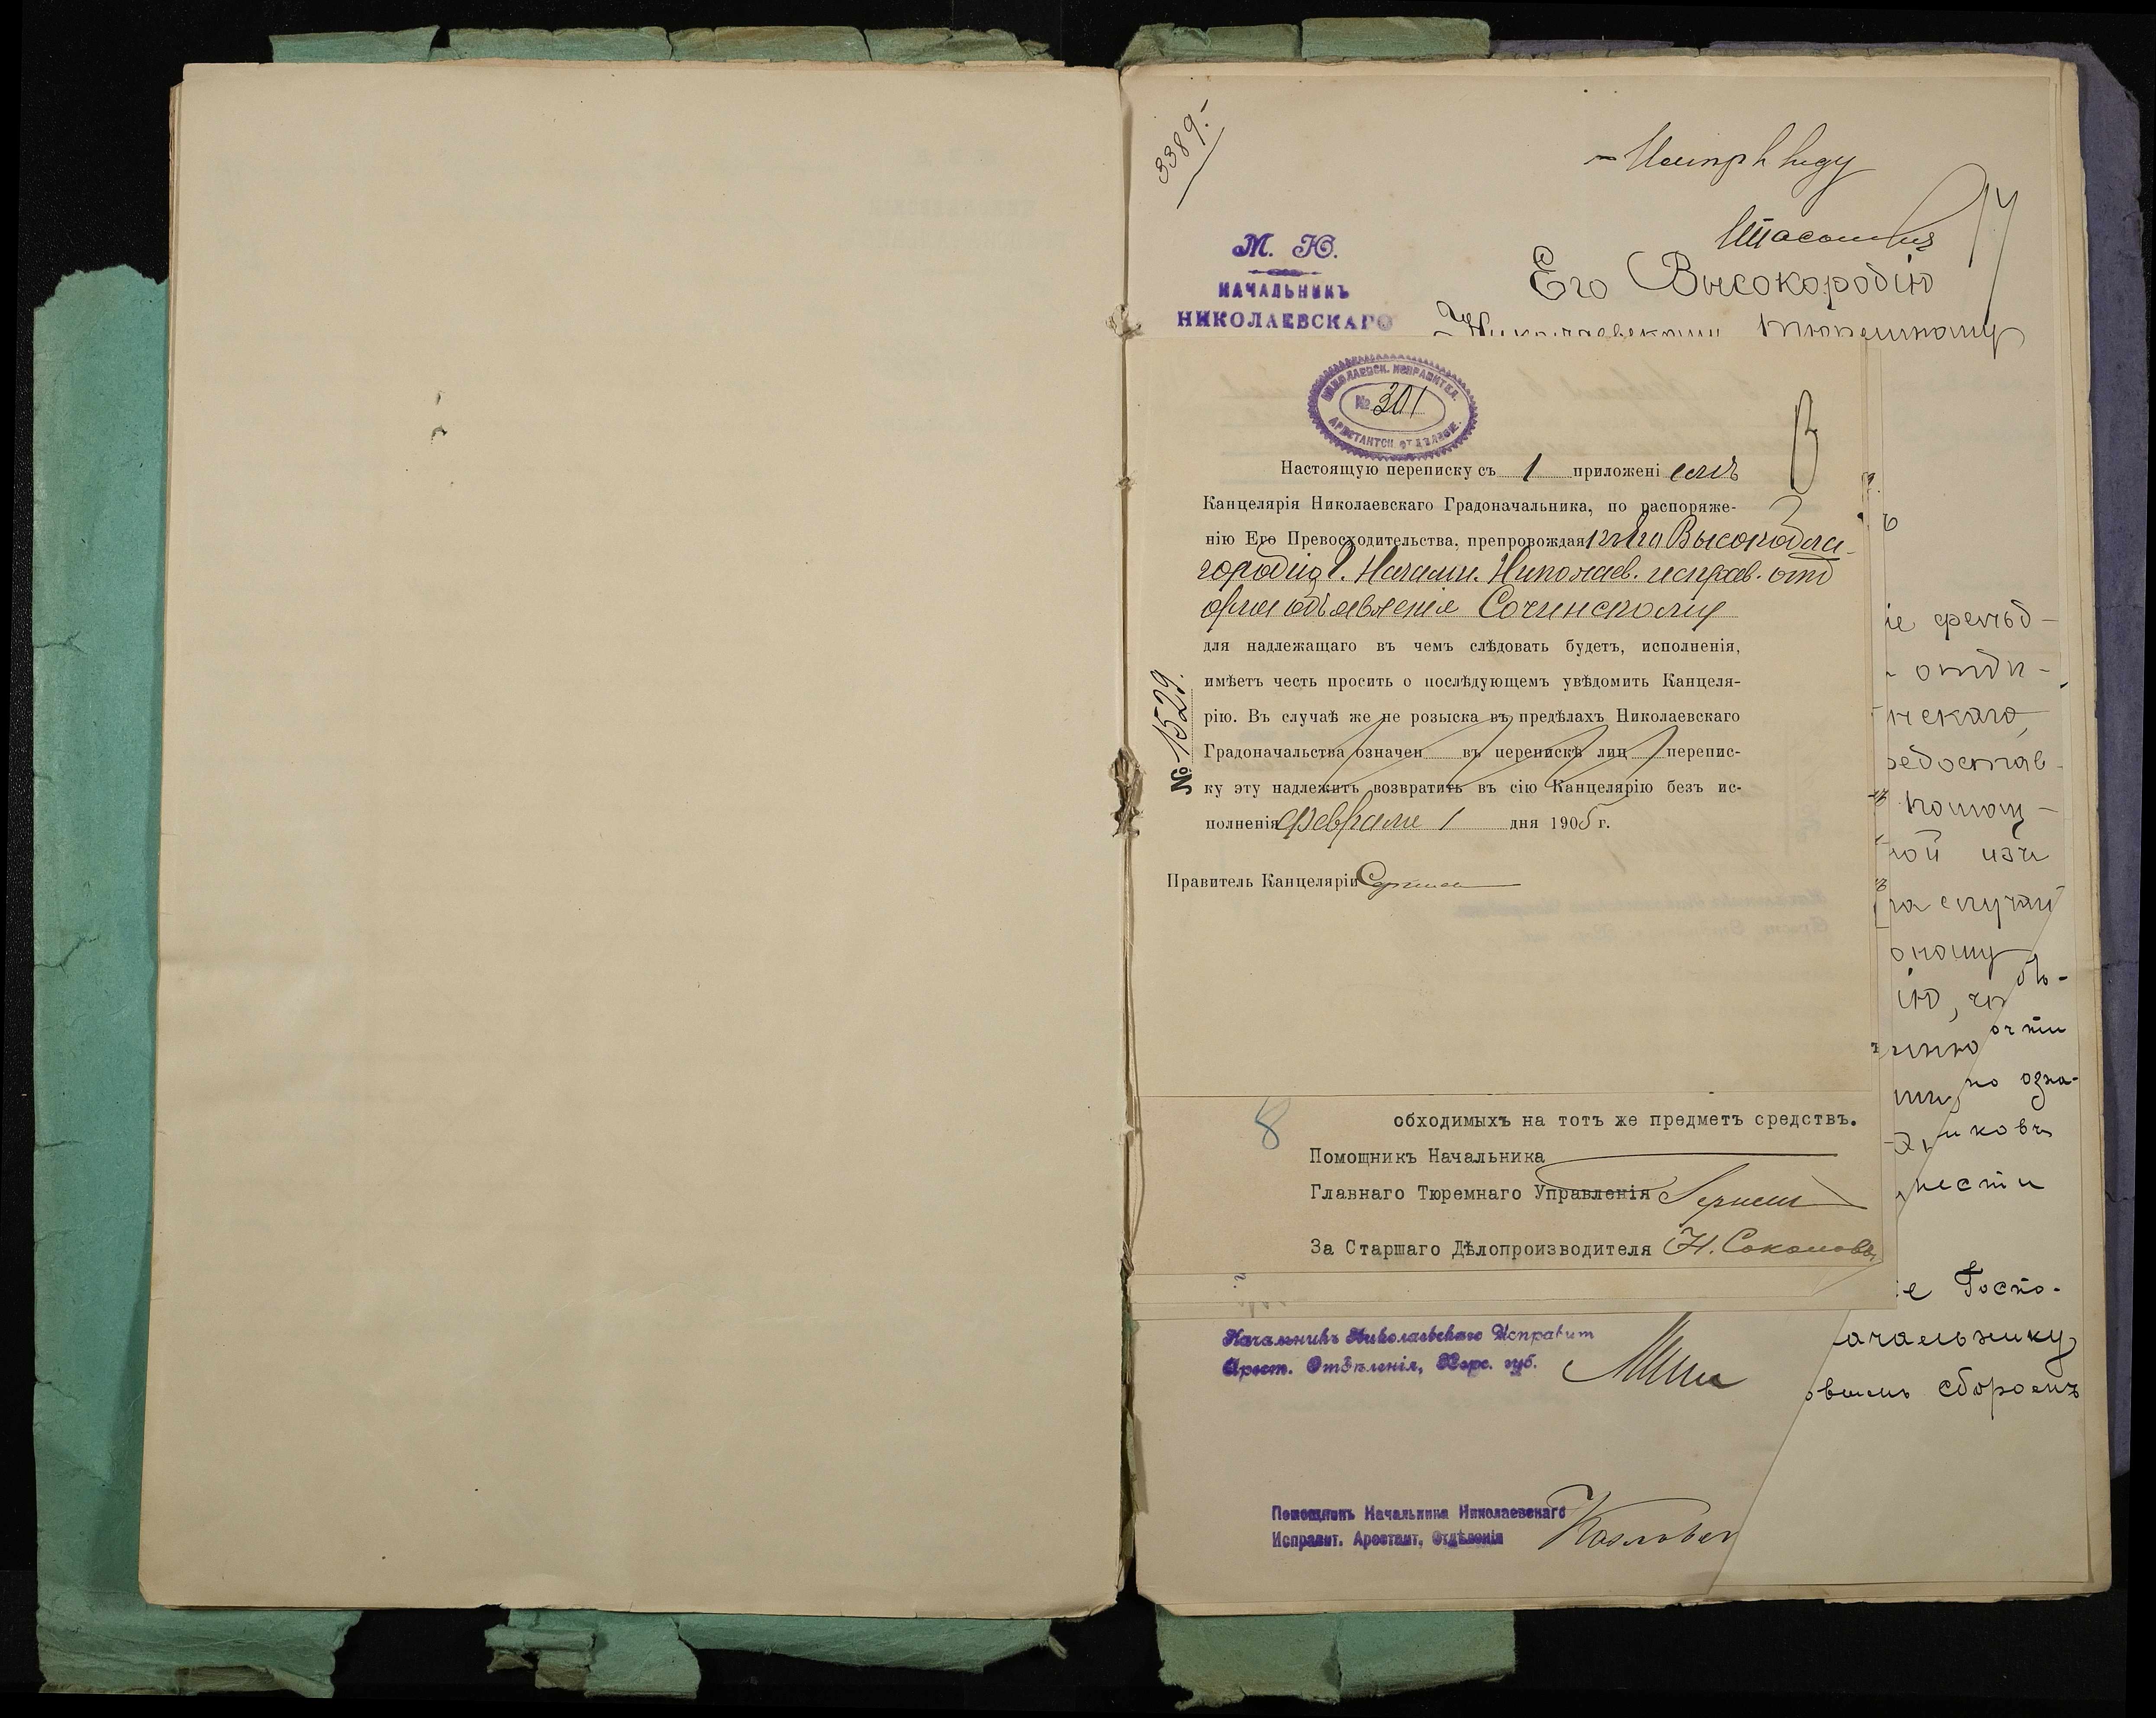 3389.
М. Ю.
НАЧАЛЬНИКЪ
НИКОЛАЕВСКАГО
Его Высокородію
Николаевскому тюремному
НИКОЛАЕВСК. ИСПРАВИТЕЛ.
№ 301
АРЕСТАНТСК. ОТДѢЛЕНІЕ.
Настоящую переписку съ 1 приложені емъ
Канцелярія Николаевскаго Градоначальника, по распоряже-
нію Его Превосходительства, препровождая Высокобла-
городію Г. Началн. Николаев. исправ. отд
для объявленія Сочинскому
для надлежащаго въ чемъ слѣдовать будетъ, исполненія,
имѣетъ честь просить о послѣдующемъ увѣдомить Канцеля-
рію. Въ случаѣ же не розыска въ предѣлахъ Николаевскаго
Градоначальства означен въ перепискѣ лиц перепис-
ку эту надлежитъ возвратить въ сію Канцелярію безъ ис-
полненія Февраля 1 дня 1905 г.
№ 1529.
Правитель Канцеляріи
8
обходимыхъ на тотъ же предметъ средствъ.
Помощникъ Начальника
Главнаго Тюремнаго Управленія
За Старшаго Дѣлопроизводителя Н. Соколовъ
Начальникъ Николаевскаго Исправит
Арест. Отдѣленія, Херс. губ.
Помощникъ Начальника Николаевскаго
Исправит. Арестант. Отдѣленія
іе фельд-
нскаго,
едостав-
помощ-
ной изъ
на случай
оному
ію,
очти
но озна-
иковъ
нести
е Госпо-
ачальнику
овымъ сборомъ